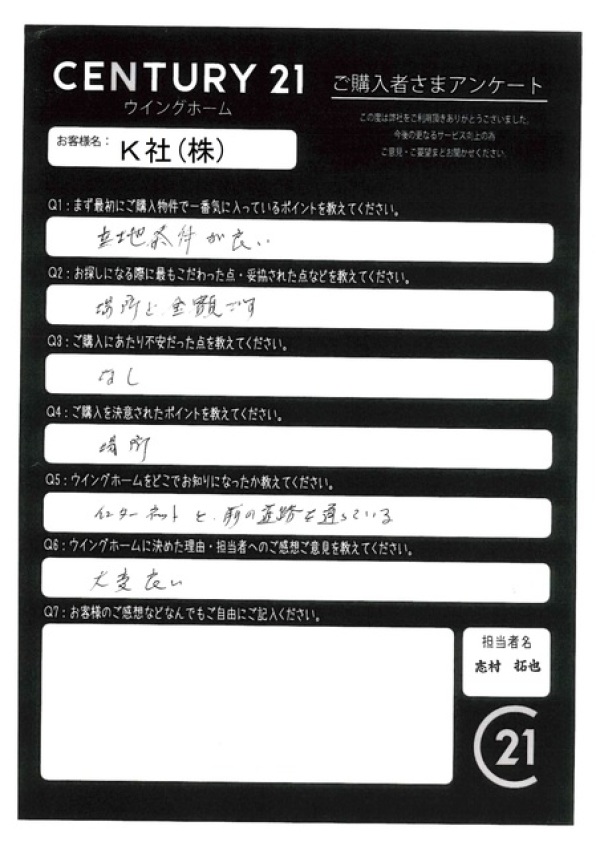 CENTURY 21
ウイングホーム
ご購入者さまアンケート
この度は弊社をご利用頂きありがとうございました。
今後の更なるサービス向上の為
ご意見・ご要望をお聞かせください。
お客様名： K社（株）
Q1：まず最初にご購入物件で一番気に入っているポイントを教えてください。
立地条件が良い
Q2：お探しになる際に最もこだわった点・妥協された点などを教えてください。
場所と金額です
Q3：ご購入にあたり不安だった点を教えてください。
なし
Q4：ご購入を決意されたポイントを教えてください。
場所
Q5：ウイングホームをどこでお知りになったか教えてください。
インターネットと、前の道路を通っている
Q6：ウイングホームに決めた理由・担当者へのご感想ご意見を教えてください。
大変良い
Q7：お客様のご感想などなんでもご自由にご記入ください。
担当者名
志村 拓也
C21